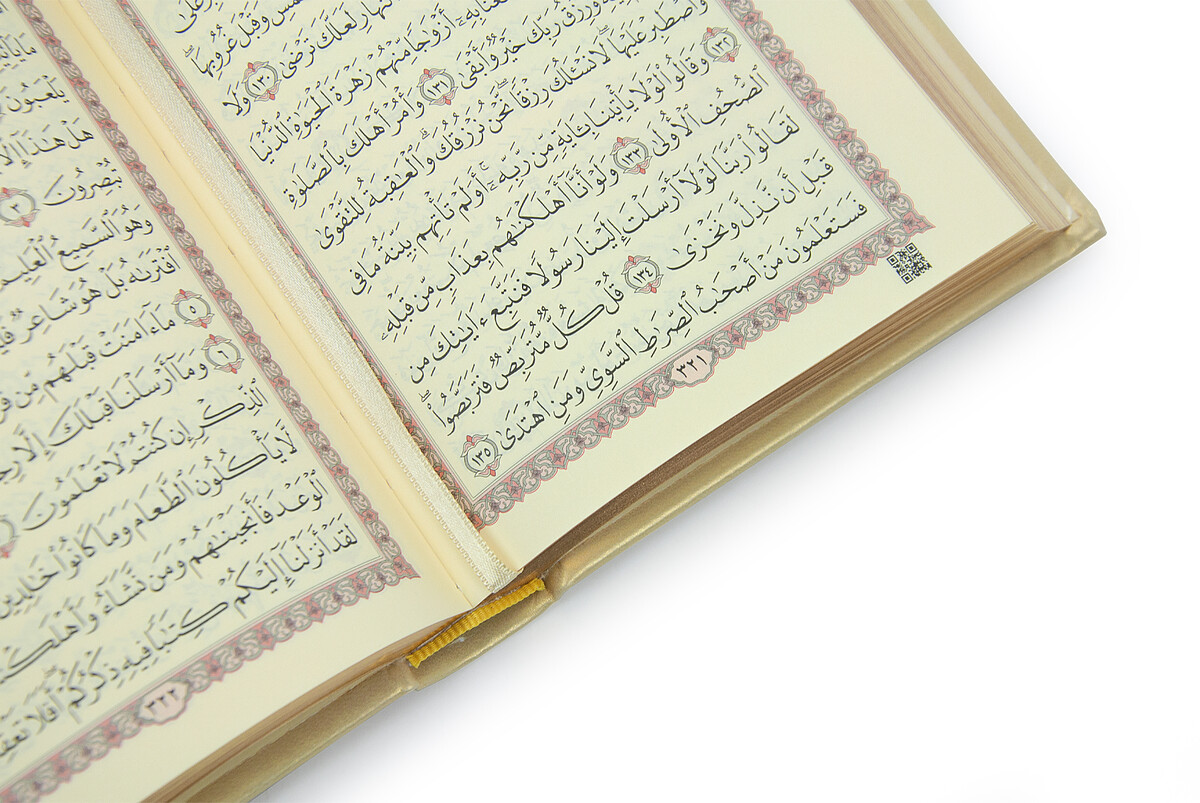 وَقَبْلَ غُرُوبِهَا ۖ
ٱلنَّهَارِ لَعَلَّكَ تَرْضَىٰ ١٣٠ وَلَا
بِهِۦٓ أَزْوَٰجًا مِّنْهُمْ زَهْرَةَ ٱلْحَيَوٰةِ ٱلدُّنْيَا
وَرِزْقُ رَبِّكَ خَيْرٌ وَأَبْقَىٰ ١٣١ وَأْمُرْ أَهْلَكَ بِٱلصَّلَوٰةِ
وَٱصْطَبِرْ عَلَيْهَا ۖ لَا نَسْـَٔلُكَ رِزْقًا ۖ نَّحْنُ نَرْزُقُكَ ۗ وَٱلْعَٰقِبَةُ لِلتَّقْوَىٰ
١٣٢ وَقَالُوا۟ لَوْلَا يَأْتِينَا بِـَٔايَةٍ مِّن رَّبِّهِۦٓ ۚ أَوَلَمْ تَأْتِهِم بَيِّنَةُ مَا فِى
ٱلصُّحُفِ ٱلْأُولَىٰ ١٣٣ وَلَوْ أَنَّآ أَهْلَكْنَٰهُم بِعَذَابٍ مِّن قَبْلِهِۦ
لَقَالُوا۟ رَبَّنَا لَوْلَآ أَرْسَلْتَ إِلَيْنَا رَسُولًا فَنَتَّبِعَ ءَايَٰتِكَ مِن
قَبْلِ أَن نَّذِلَّ وَنَخْزَىٰ ١٣٤ قُلْ كُلٌّ مُّتَرَبِّصٌ فَتَرَبَّصُوا۟ ۖ
فَسَتَعْلَمُونَ مَنْ أَصْحَٰبُ ٱلصِّرَٰطِ ٱلسَّوِىِّ وَمَنِ ٱهْتَدَىٰ ١٣٥
٣٢١
يَلْعَبُونَ
هَلْ هَٰذَآ إِلَّا
تُبْصِرُونَ ٣
وَهُوَ ٱلسَّمِيعُ ٱلْعَلِيمُ
ٱفْتَرَىٰهُ بَلْ هُوَ شَاعِرٌ
٥ مَآ ءَامَنَتْ قَبْلَهُم مِّن
٦ وَمَآ أَرْسَلْنَا قَبْلَكَ إِلَّا
ٱلذِّكْرِ إِن كُنتُمْ لَا تَعْلَمُونَ
لَّا يَأْكُلُونَ ٱلطَّعَامَ وَمَا كَانُوا۟ خَٰلِدِينَ
ٱلْوَعْدَ فَأَنجَيْنَٰهُمْ وَمَن نَّشَآءُ
لَقَدْ أَنزَلْنَآ إِلَيْكُمْ كِتَٰبًا فِيهِ ذِكْرُكُمْ ۖ أَفَلَا
٣٢٢